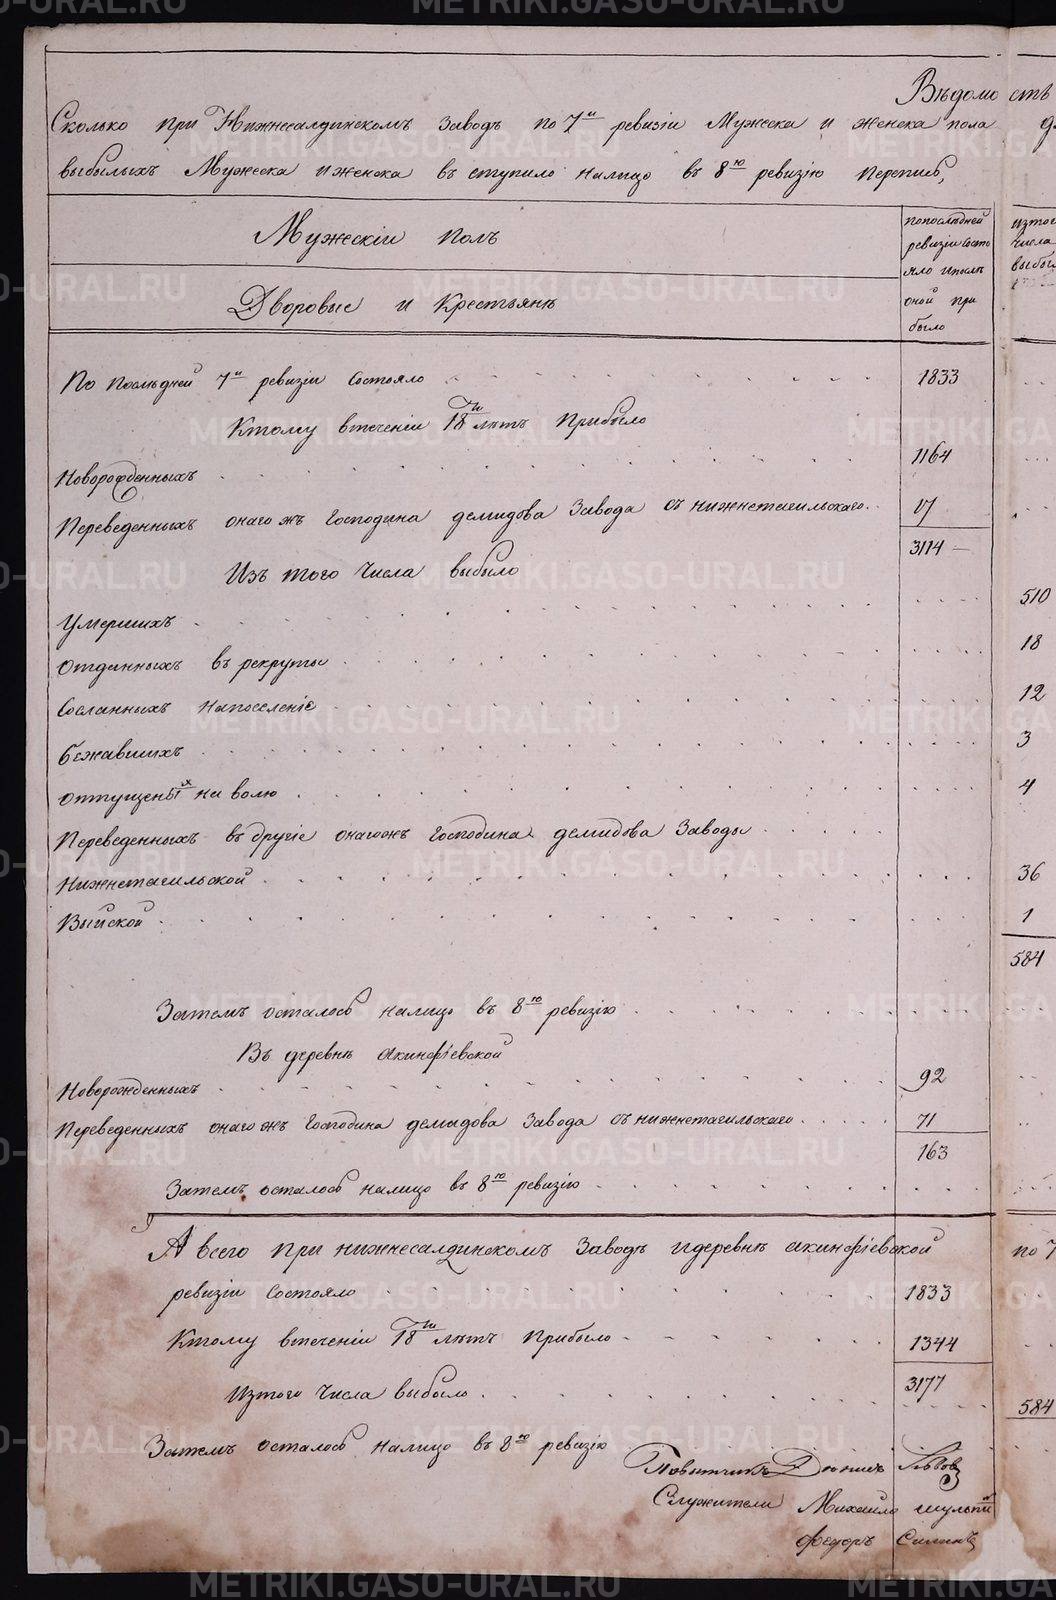 Вѣдомость
Сколько при Нижнесалдинскомъ заводѣ по 7й ревизіи Мужеска и женска пола
выбылыхъ Мужеска и женска въ ступило налицо въ 8ю ревизію перепись,
Мужескій полъ
Дворовые и Крестьянѣ
попослѣдней
ревизіи состо
яло ипослѣ
оной при
было
изтого
числа
выбыло
По послѣдней 7й ревизіи состояло 1833
Ктому втеченіи 18ти лѣтъ прибыло
Новорожденныхъ 1164
Переведенныхъ онаго жъ Господина демидова Завода съ нижнетагильскаго
3114
Изъ того числа выбыло
Умершихъ 510
отданныхъ въ рекруты 18
Сосланныхъ напоселеніе 12
бежавшихъ 3
отпущеных на волю 4
Переведенныхъ въ другіе онагожъ Господина демидова Заводы
Нижнетагильской 36
Выйской 1
584
Затемъ осталось налицо въ 8ю ревизію
Въ деревнѣ акинфіевской
Новорожденныхъ 92
Переведенныхъ онаго жъ Господина демидова Завода съ нижнетагильскаго 71
163
Затемъ осталось налицо въ 8ю ревизію
А всего при нижнесалдинскомъ Заводѣ идеревнѣ акинфіевской по 7
ревизіи состояло 1833
Ктому втеченіи 18ти лѣтъ прибыло 1344
3177
Изтого числа выбыло 584
Затемъ осталось налицо въ 8ю ревизію
Повытчикъ
Служители Михайло
федоръ
METRIKI.GASO-URAL.RU